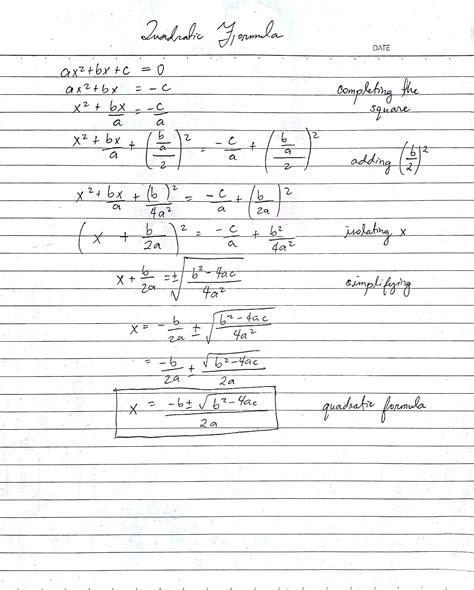 Quadratic Formula
DATE
ax² + bx + c = 0
ax² + bx = -c completing the
x² + bx/a = -c/a square
x² + bx/a + ((b/a)/2)² = -c/a + ((b/a)/2)² adding (b/2)²
x² + bx/a + (b)²/4a² = -c/a + (b/2a)²
(x + b/2a)² = -c/a + b²/4a² isolating x
x + b/2a = ±√(b² - 4ac/4a²) simplifying
x = -b/2a ± √(b² - 4ac/4a²)
= -b/2a ± √(b² - 4ac)/2a
x = -b ± √(b² - 4ac)/2a quadratic formula